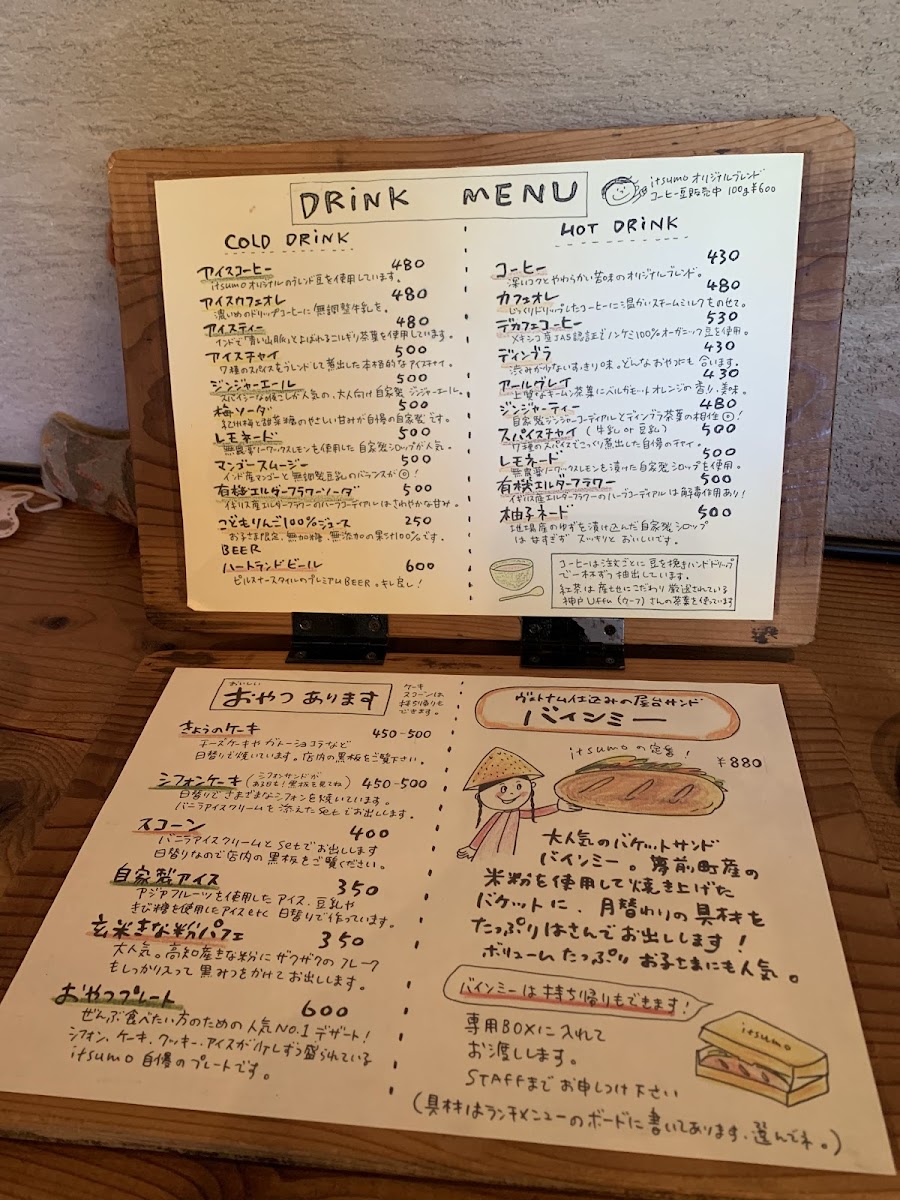 DRINK MENU
itsumo オリジナルブレンド
コーヒー豆販売中 100g ¥600
COLD DRINK
アイスコーヒー 480
itsumoオリジナルのブレンド豆を使用しています。
アイスカフェオレ 480
濃いめのドリップコーヒーに無調整牛乳を。
アイスティー 480
インドで「青い山脈」とよばれるニルギリ茶葉を使用しています。
アイスチャイ 500
7種のスパイスをブレンドして煮出した本格的なアイスチャイ。
ジンジャーエール 500
スパイシーな後口が人気の、大人向け自家製ジンジャーエール。
梅ソーダ 500
紅映梅と甜菜糖のやさしい甘みが自慢の自家製です。
レモネード 500
無農薬ノーワックスレモンを使用した自家製シロップが人気。
マンゴースムージー 500
インド産マンゴーと無調製豆乳のバランスが◎!
有機エルダーフラワーソーダ 500
イギリス産エルダーフラワーのハーブコーディアルはさわやかな甘み。
こどもりんご100%ジュース 250
お子さま限定、無加糖 無添加の果汁100%です。
BEER
ハートランドビール 600
ピルスナースタイルのプレミアムBEER。キレ良し!
HOT DRINK
コーヒー 430
深いコクとやわらかい苦味のオリジナルブレンド。
カフェオレ 480
じっくりドリップしたコーヒーに温かいスチームミルクをのせて。
デカフェコーヒー 530
メキシコ産JAS認証生ノンケミ100%オーガニック豆を使用。
ディンブラ 430
渋みが少ないすっきり味。どんなおやつにも合います。
アールグレイ 430
上質なキームン茶葉にベルガモットオレンジの香り、美味。
ジンジャーティー 480
自家製ジンジャーコーディアルとディンブラ茶葉の相性◎!
スパイスチャイ (牛乳or豆乳) 500
7種のスパイスでこっくり煮出した自慢のチャイ。
レモネード 500
無農薬ノーワックスレモンを漬けた自家製シロップを使用。
有機エルダーフラワー 500
イギリス産エルダーフラワーのハーブコーディアルは解毒作用あり!
柚子ネード 500
地場産のゆずを漬け込んだ自家製シロップ
は甘すぎず スッキリと おいしいです。
コーヒーは注文ごとに豆を挽きハンドドリップ
で一杯ずつ抽出しています。
紅茶は産地にこだわり厳選されている
神戸Uffu(ウーフ)さんの茶葉を使っています
おいしい
おやつあります
ケーキ
スコーンは
持ち帰りも
できます。
きょうのケーキ 450-500
チーズケーキやガトーショコラなど
日替りで焼いています。店内の黒板をご覧下さい。
シフォンケーキ (シフォンサンドが
ある日も!黒板を見てね) 450-500
日替りでさまざまなシフォンを焼いています。
バニラアイスクリームを添えたsetでお出しします。
スコーン 400
バニラアイスクリームとsetでお出しします
日替りなので店内の黒板をご覧ください。
自家製アイス 350
アジアフルーツを使用したアイス、豆乳や
きび糖を使用したアイスetc 日替りで作っています。
玄米きな粉パフェ 350
大人気。高知産きな粉にザクザクのフレーク
もしっかり入って黒みつをかけてお出しします。
おやつプレート 600
ぜんぶ食べたい方のための人気No.1デザート!
シフォン、ケーキ、クッキー、アイスが少しずつ盛られている
itsumo自慢のプレートです。
ヴェトナム仕込みの屋台サンド
バインミー
itsumoの定番!
¥880
大人気のバケットサンド
バインミー。夢前町産の
米粉を使用して焼き上げた
バケットに、月替わりの具材を
たっぷりはさんでお出しします!
ボリュームたっぷり お子さまにも人気。
バインミーは持ち帰りもできます!
専用BOXに入れて
お渡しします。
STAFFまでお申しつけ下さい
(具材はランチメニューのボードに書いてあります、選んでネ。)
itsumo